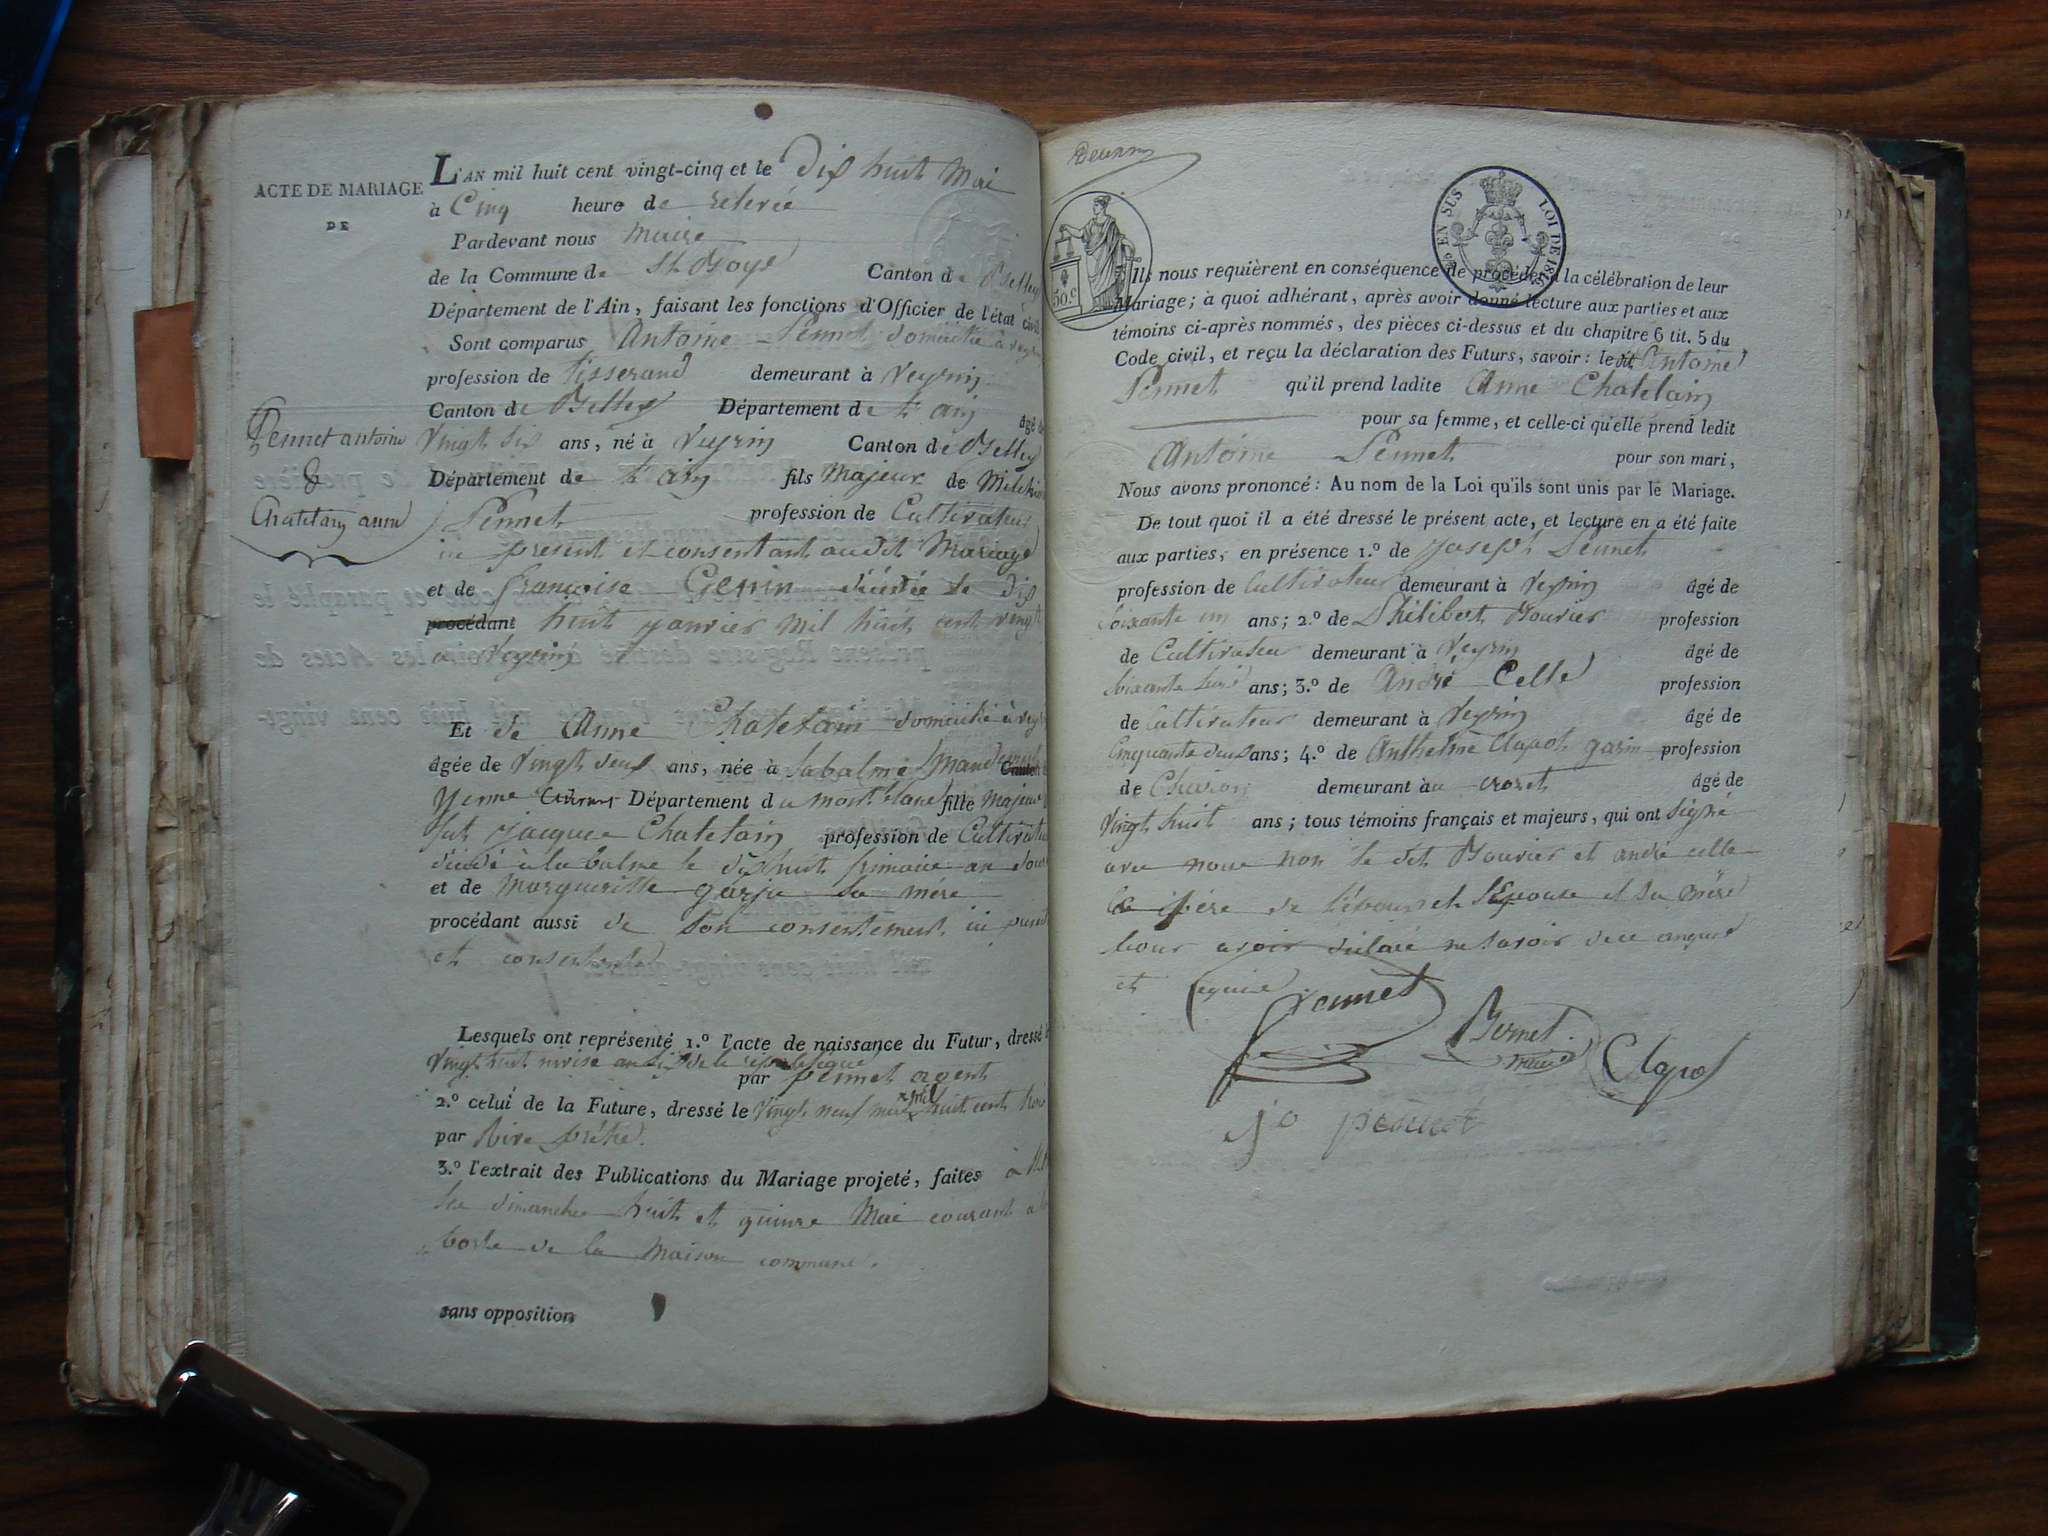 ACTE DE MARIAGE
DE
Pennet antoine
&
Chatelain anne
L'AN mil huit cent vingt-cinq et le dix huit Mai
à Cinq heure de relevée
Pardevant nous Maire
de la Commune de Canton de Belley
Département de l'Ain, faisant les fonctions d'Officier de l'état civil
Sont comparus Antoine Pennet domicilié à veyrin
profession de tisserand demeurant à Veyrin
Canton de Belley Département de l'ain âgé de
Vingt six ans, né à Veyrin Canton de Belley
Département de l'ain fils Majeur de
Pennet profession de Cultivateur
ici présent et consentant audit Mariage
et de françoise décédée le dix
procédant huit janvier mil huit cent vingt
à Veyrin
Et de Anne Chatelain domicilié à
âgée de Vingt deux ans, née à labalme Mandement Canton
Yenne Département du mont blanc fille Majeure
fut jacques Chatelain profession de Cultivateur
décédé à la balme le dixhuit frimaire an douze
et de Margueritte sa mère
procédant aussi de son consentement ici
et consentante
Lesquels ont représenté 1.º l'acte de naissance du Futur, dressé le
Vingt huit nivise an six de la république
par pennet agent
2.º celui de la Future, dressé le Vingt neuf mil huit cent
par prêtre.
3.º l'extrait des Publications du Mariage projeté, faites à
les dimanches huit et quinze Mai courant à la
porte de la Maison commune.
sans opposition
50.c
EN SUS LOI DE
Ils nous requièrent en conséquence de procéder à la célébration de leur
Mariage; à quoi adhérant, après avoir donné lecture aux parties et aux
témoins ci-après nommés, des pièces ci-dessus et du chapitre 6 tit. 5 du
Code civil, et reçu la déclaration des Futurs, savoir: ledit Antoine
Pennet qu'il prend ladite Anne Chatelain
pour sa femme, et celle-ci qu'elle prend ledit
Antoine Pennet pour son mari,
Nous avons prononcé: Au nom de la Loi qu'ils sont unis par le Mariage.
De tout quoi il a été dressé le présent acte, et lecture en a été faite
aux parties, en présence 1.º de Joseph Pennet
profession de Cultivateur demeurant à Veyrin âgé de
Soixante un ans; 2.º de Philibert Bouvier profession
de Cultivateur demeurant à Veyrin âgé de
Soixante ans; 3.º de André Celle profession
de Cultivateur demeurant à Veyrin âgé de
Cinquante deux ans; 4.º de Anthelme Clapot garin profession
de Charon demeurant au crozet âgé de
Vingt huit ans; tous témoins français et majeurs, qui ont Signé
avec nous non le dit Bouvier et andré celle
père de l'époux et l'Epouse et Sa Mère
pour avoir déclaré ne savoir de ce enquis
et requis.
Pennet
Clapot
jo pennet